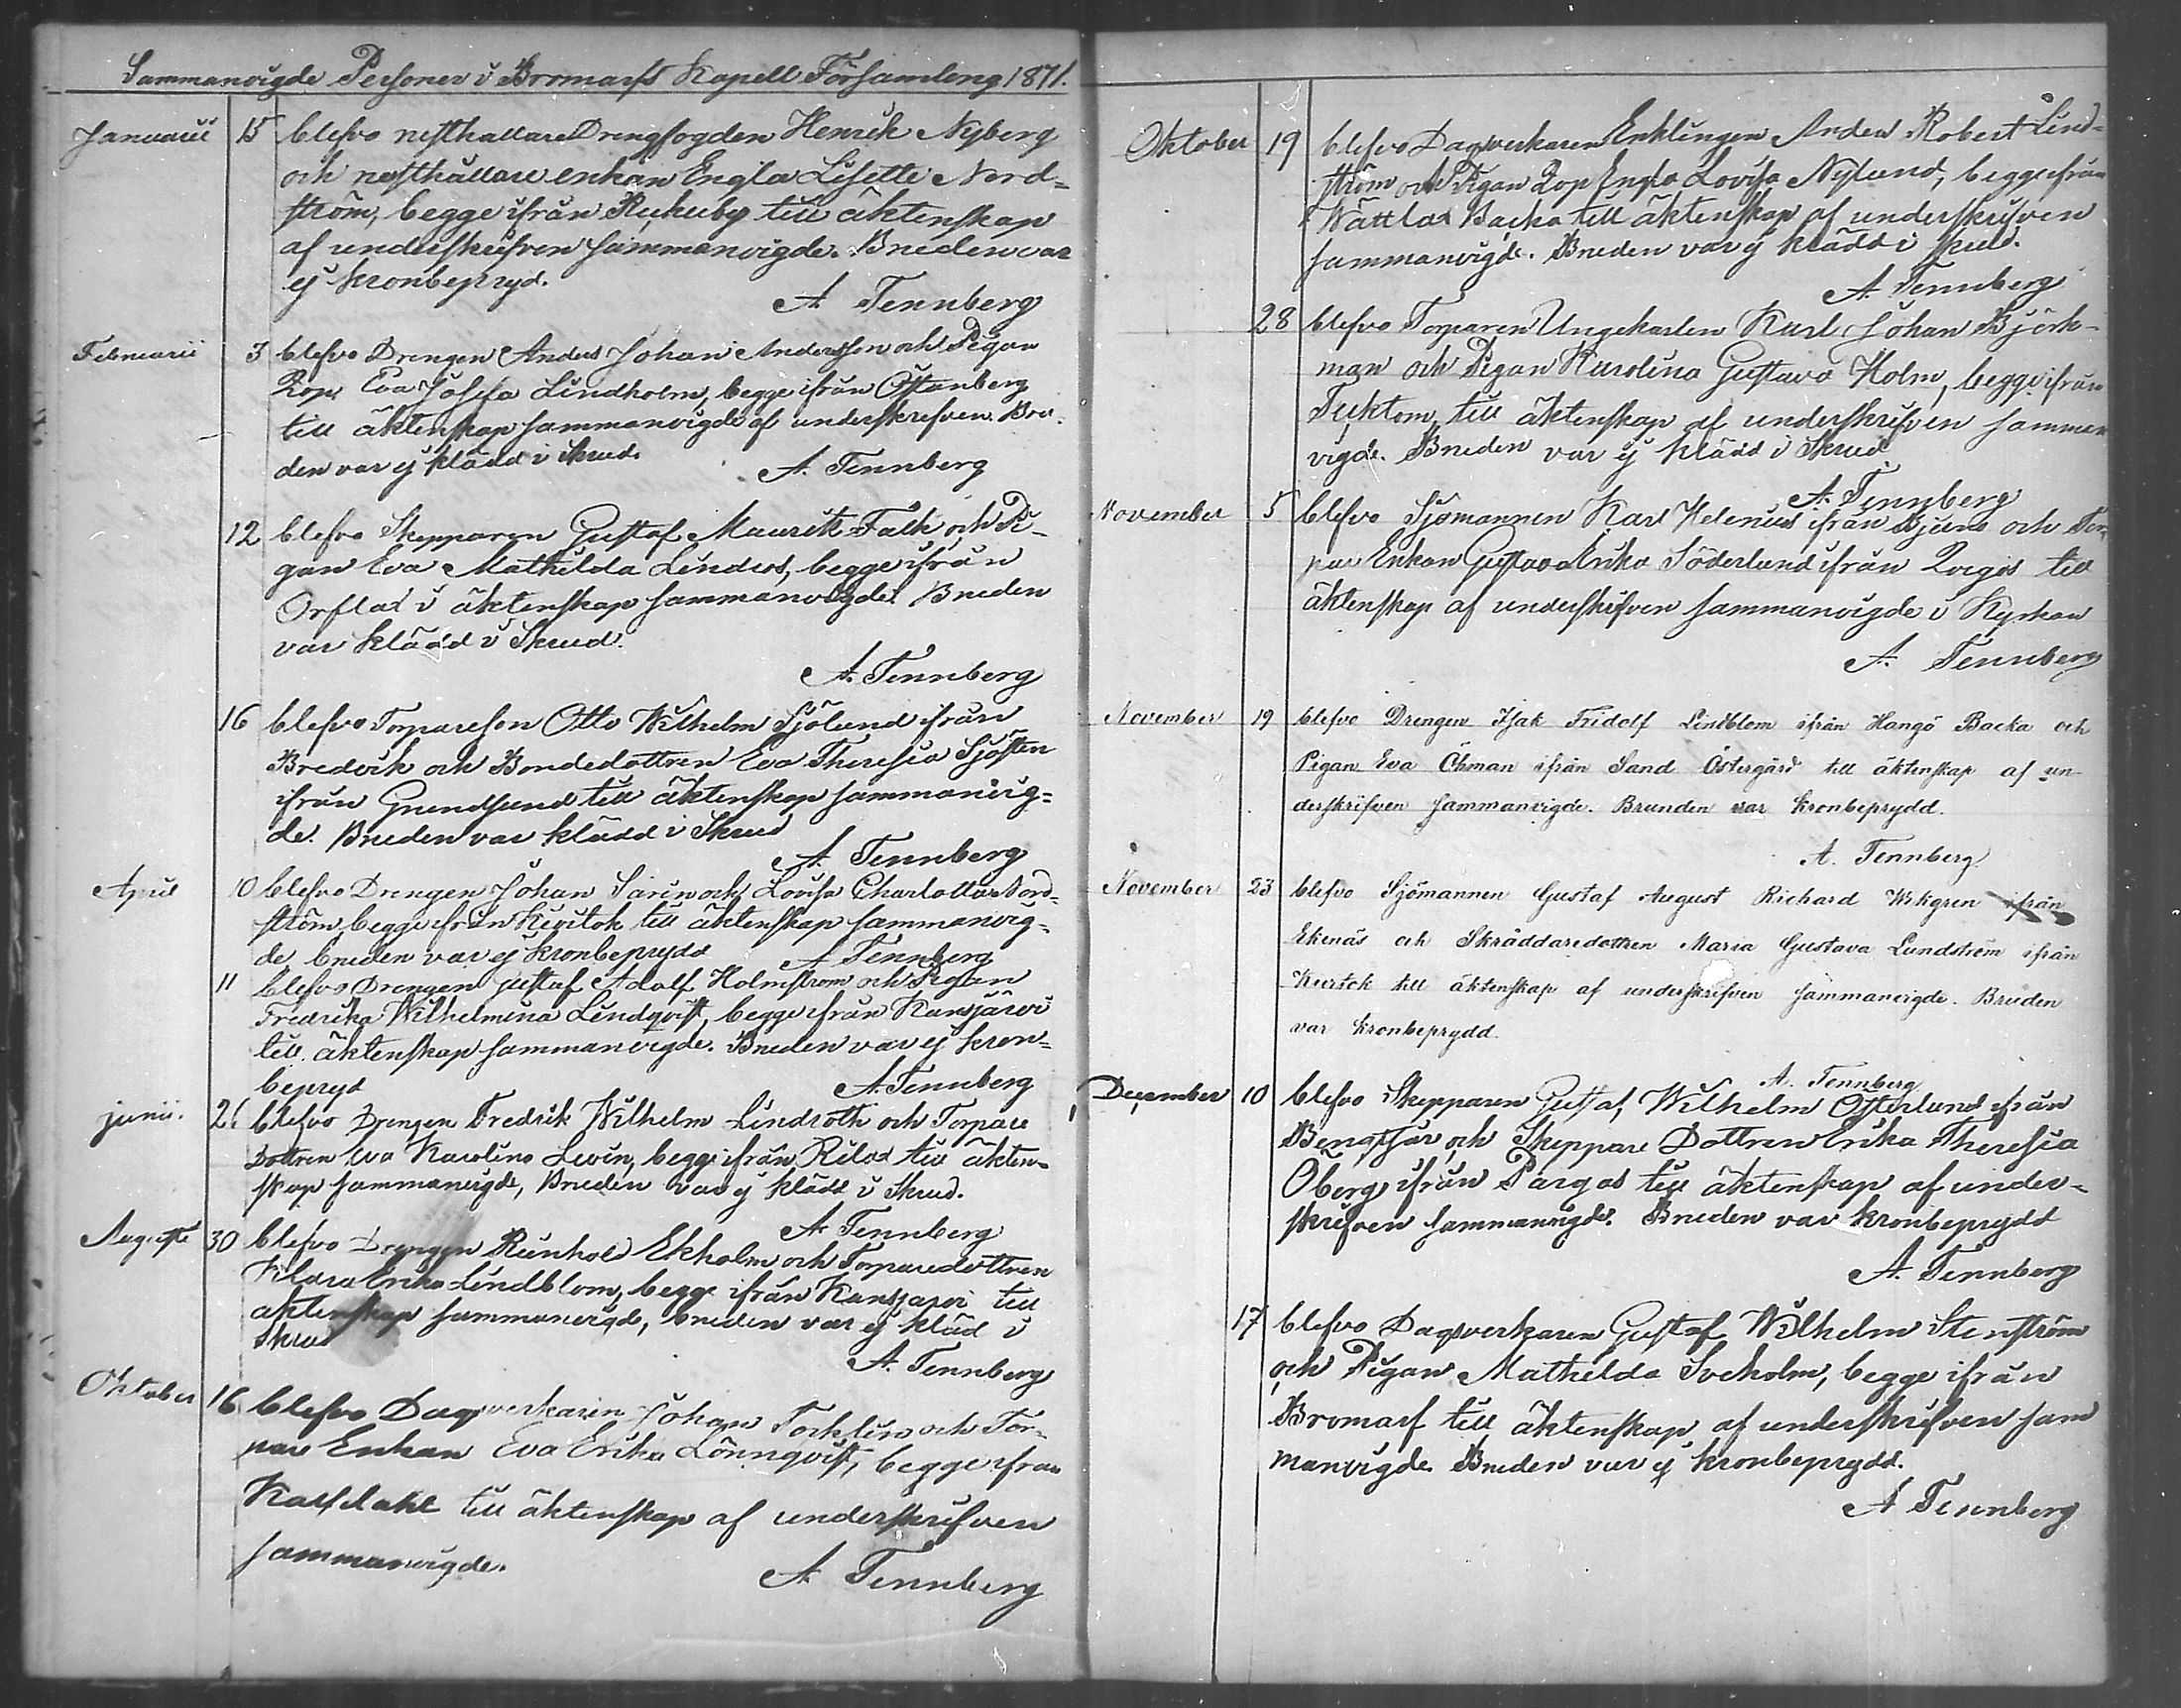 Sammanvigde Personer i Bromarfs Kapell Församling 1871.
Januarii 15 blefvo Drengfogden Henrik Nyberg
och enkan Engla Lisette Nord-
ström, begge ifrån till äktenskap
af underskrifven sammanvigde. Bruden var
ej kronbepryd.
A Tennberg
Februarii 3 blefvo Drengen Anders Johan Andersson och Pigan
Eva Josefa Lindholm, begge ifrån
till äktenskap sammanvigde af underskrifven. Bru-
den var ej klädd i Skrud.
A. Tennberg
12 blefvo Skepparen Gustaf Maurits Falk och Pi-
gan Eva Mathilda Lindros, begge ifrån
Orflax i äktenskap sammanvigde. Bruden
var klädd i Skrud.
A. Tennberg
16 blefvo Torpareson Otto Wilhelm Sjölund ifrån
Bredvik och Bondedottren Eva Theresia Sjösten
ifrån Grundsund till äktenskap sammanvig-
de. Bruden var klädd i Skrud
A. Tennberg
April 10 blefvo Drengen Johan Sarin och Lovisa Charlotta Nord-
ström begge ifrån till äktenskap sammanvig-
de bruden var ej kronbeprydd
A Tennberg
11 blefvo Drengen Gustaf Adolf Holmstrom och Pigan
Fredrika Wilhelmina Lindqvist, begge ifrån Kansjärvi
till äktenskap sammanvigde. Bruden var ej kron-
bepryd
A. Tennberg
junii. blefvo Drengen Fredrik Wilhelm Lindroth och Torpare
Dottren Eva Karolina Levin, begge ifrån Rilax till äkten-
skap sammanvigde, Bruden var ej klädd i Skrud.
A Tennberg
Augusti 30 blefvo Drengen Reinhold Ekholm och Torparedottren
Klara Erika Lindblom, begge ifrån Kansjarvi till
aktenskap sammanvigde, bruden var ej klad i
Skrud
A. Tennberg
Oktober 16 blefvo Dagsverkaren Johan Torklin och Tor-
pare Enkan Eva Erika Lönnqvist, begge ifran
till äktenskap af underskrifven
sammanvigde.
A Tennberg
Oktober 19 blefvo Dagsverkaren Enklingen Anders Robert Lind-
ström och Pigan Engla Lovisa Nylund, begge ifrån
Nättlax Backa till äktenskap af underskrifven
sammanvigde. Bruden var ej klädd i skrud.
A. Tennberg
28 blefvo Torparen Ungekarlen Karl Johan Björk-
man och Pigan Karolina Gustava Holm, begge ifrån
Täktom, till äktenskap af underskrifven samman
vigde. Bruden var ej klädd i Skrud
A. Tennberg
November 5 blefvo Sjömannen Karl Helenius ifrån och Tor-
pare Enkan Gustava Erika Söderlund ifrån till
äktenskap af underskrifven sammanvigde i Kyrkan
A. Tennberg
November 19 blefvo Drengen Isak Fridolf Lindblom ifrån Hangö Backa och
Pigan Eva Öhman ifrån Sand Östergård till äktenskap af un-
derskrifven sammanvigde. Brunden var kronbeprydd.
A. Tennberg.
November 23 blefvo Sjömannen Gustaf August Richard ifrån
Ekenäs och Skräddaredottren Maria Gustava Lundström ifrån
till äktenskap af underskrifven sammanvigde. Bruden
var kronbeprydd.
A. Tennberg
December 10 blefvo Skepparen Gustaf Wilhelm Österlund ifrån
Bengtsår och Skeppare Dottren Erika Theresia
Öberg ifrån Pargas till äktenskap af under-
skrifven sammanvigde. Bruden var kronbeprydd
A. Tennberg
17 blefvo Dagsverkaren Gustaf Wilhelm Stenström
och Pigan Mathilda Sveholm, begge ifrån
Bromarf till äktenskap af underskrifven sam
manvigde. Bruden var ej kronbeprydd.
A Tennberg